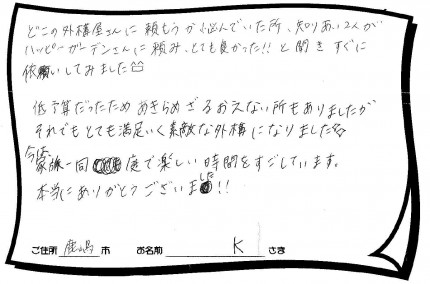 どこの外構屋さんに頼もうか悩んでいた所、知りあい2人が
ハッピーガーデンさんに頼み、とても良かった!!と聞きすぐに
依頼いしてみました
低予算だったためあきらめざるおえない所もありましたが
それでもとても満足いく素敵な外構になりました
今は
家族一同 庭で楽しい時間をすごしています。
本当にありがとうございました!!
ご住所 鹿嶋 市 お名前 K さま